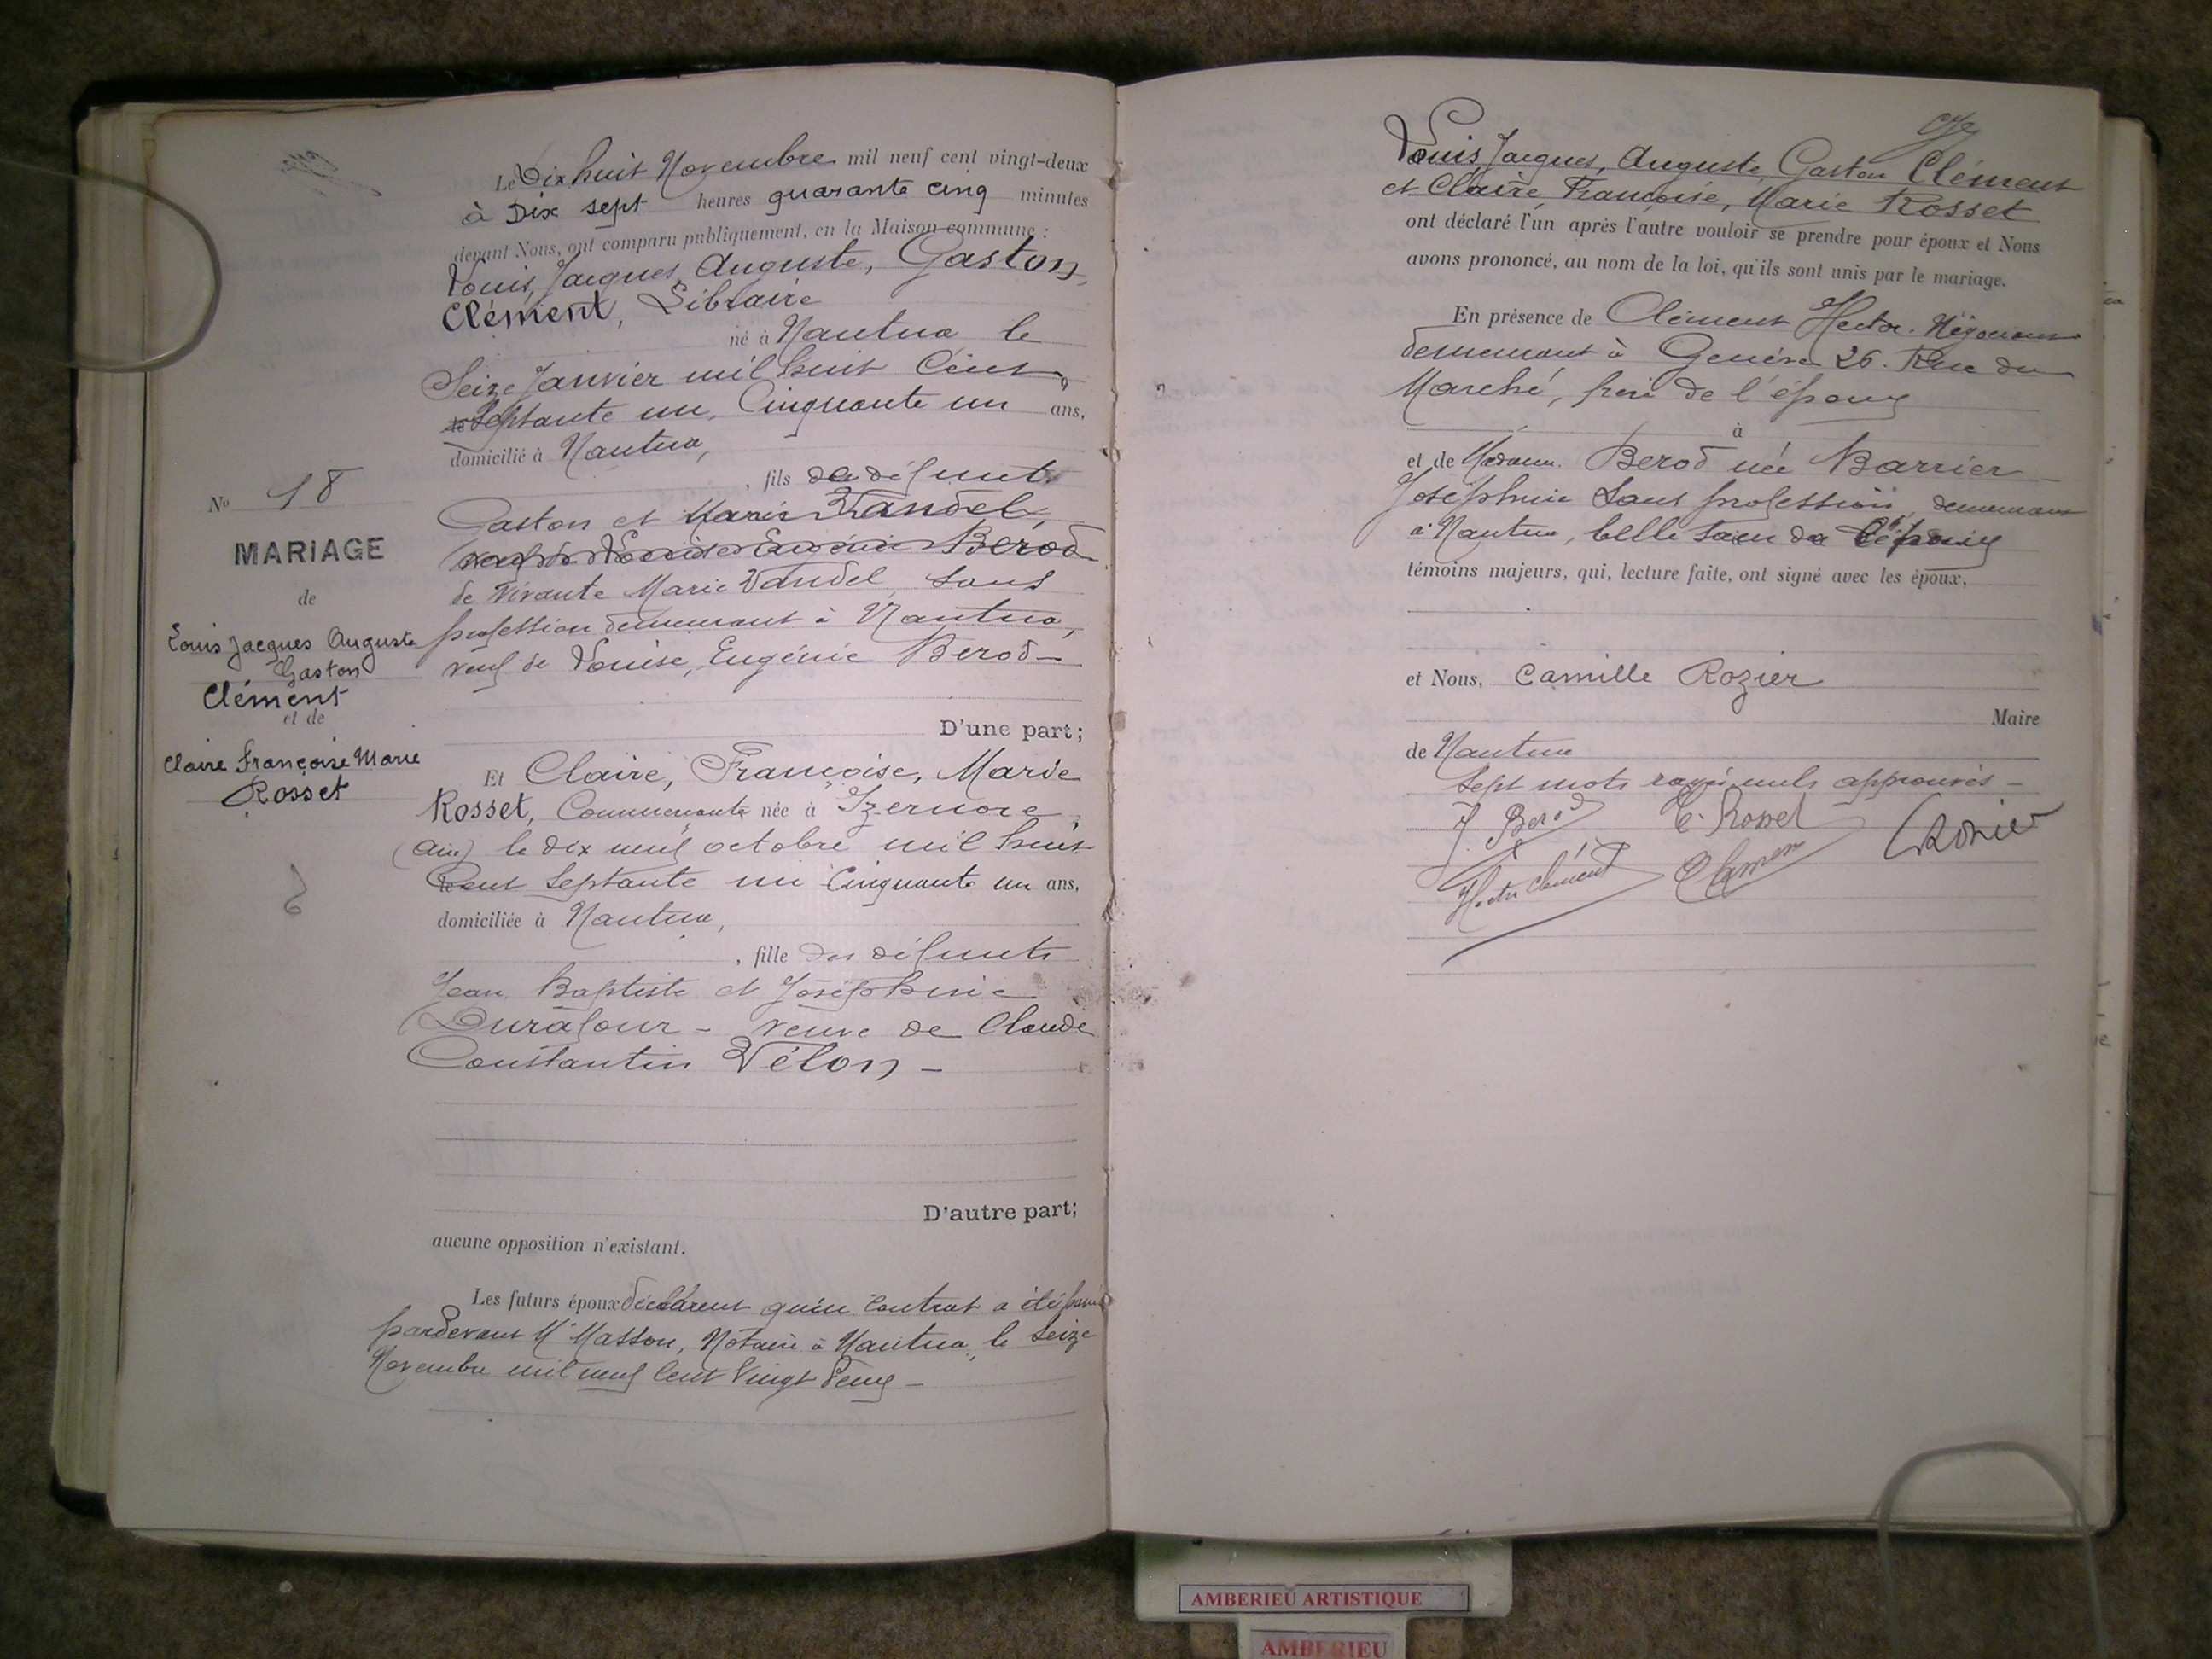 Le Dix huit Novembre mil neuf cent vingt-deux
à Dix sept heures quarante cinq minutes
devant Nous, ont comparu publiquement, en la Maison commune :
Louis, Jacques, Auguste, Gaston,
Clément, Libraire
né à Nantua le
Seize Janvier mil huit Cent
le Septante un, Cinquante un ans,
domicilié à Nantua,
, fils de défunt
Gaston et Marie Vandel,
veuf de Louise Eugénie Berod
de vivante Marie Vandel sans
profession demeurant à Nantua,
veuf de Louise, Eugénie Berod —
D'une part;
Et Claire, Françoise, Marie
Rosset, Commerçante née à Izernore,
(Ain) le dix neuf octobre mil huit
le Cent Septante un Cinquante un ans,
domiciliée à Nantua,
, fille des défunts
Jean Baptiste et Joséphine
Durafour - veuve de Claude
Constantin Vélon —
D'autre part;
aucune opposition n'existant.
Les futurs époux déclarent qu'un contrat a été passé
pardevant Me Masson, Notaire à Nantua, le Seize
Novembre mil neuf Cent Vingt Deux —
No 18
MARIAGE
de
Louis Jacques Auguste
Gaston
Clément
et de
Claire Françoise Marie
Rosset
Louis Jacques, Auguste, Gaston Clément
et Claire, Françoise, Marie Rosset
ont déclaré l'un après l'autre vouloir se prendre pour époux et Nous
avons prononcé, au nom de la loi, qu'ils sont unis par le mariage.
En présence de Clément Hector. Négociant
demeurant à Genève 26. Rue du
Marché, frère de l'époux
à
et de Madame Berod née Barrier
Joséphine Sans profession, demeurant
à Nantua, belle sœur de l'époux
témoins majeurs, qui, lecture faite, ont signé avec les époux.
et Nous, Camille Rozier
Maire
de Nantua
Sept mots rayés nuls approuvés —
J. Berod C. Rosset CRozier
Hector Clément Clément
AMBERIEU ARTISTIQUE
AMBERIEU